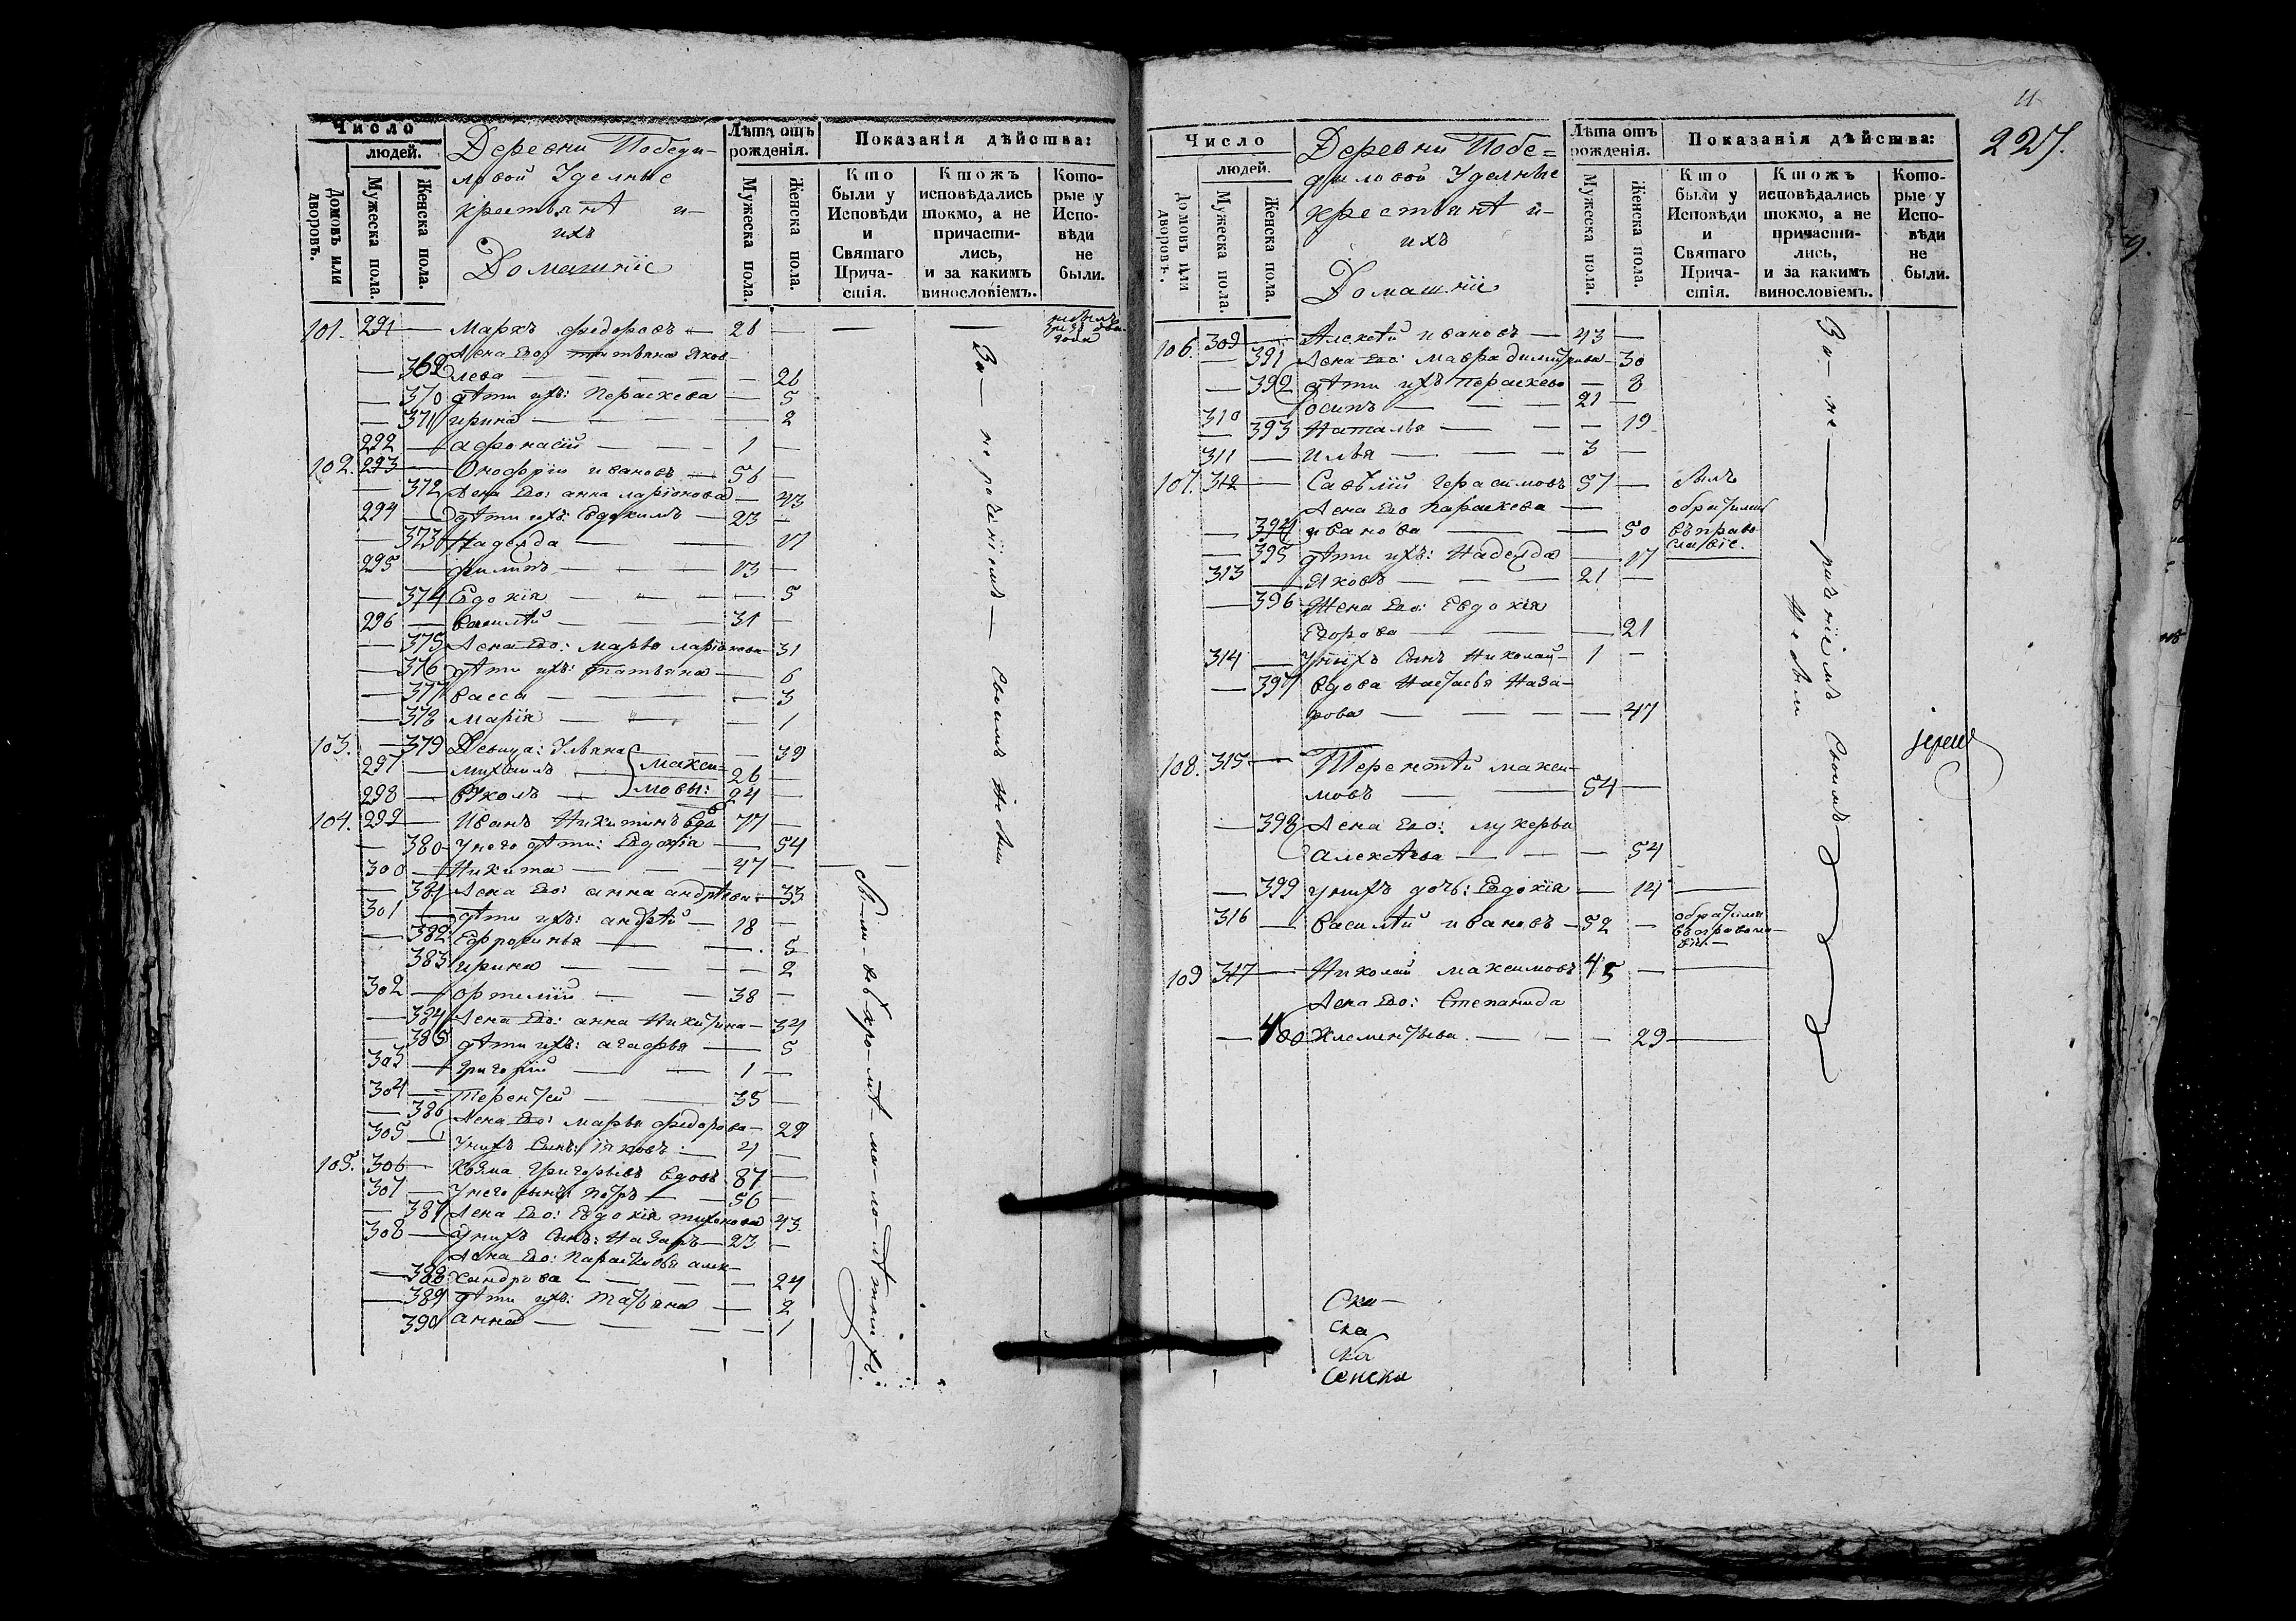 Число
людей.
Домовъ или дворовъ.
Мужеска пола.
Женска пола.
Деревни Победи-
ловой Уделные
крестьянѣ и
ихъ
Домашніе
Лѣта отъ
рожденія.
Мужеска пола.
Женска пола.
Показанія дѣйства:
Кто
были у
Исповѣди
и
Святаго
Прича-
стія.
Ктожъ
исповѣдались
токмо, а не
причасти-
лись,
и за какимъ
винословіемъ.
Кото-
рые у
Испо-
вѣди
не
были.
101. 291 — Маркъ федоровъ — 28 —
Жена Его: татьяна Яков-
— 369 лева — 26
— 370 дѣти ихъ: Пераскева — 5
— 371 ирина — 2
292 — афонасій — 1 —
102. 293 — Онофрій ивановъ — 56 —
— 372 Жена Его: анна ларіонова — 43
294 — дѣти ихъ: Евдокимъ — 23 —
— 373 Надежда — 17
295 — филипъ — 13 —
— 374 Евдокія — 5
296 — василѣй — 31 —
— 375 Жена Его: марья ларіонова — 31
— 376 дѣти ихъ: татьяна — 6
— 377 васса — 3
— 378 марія — 1
103. — 379 Девица: Ульяна — 39
297 — михаилъ — макси- 26 —
298 — вуколъ — мовы: 24 —
104. 299 — Иванъ Никитинъ вдо 77 —
— 380 У него дѣти: Евдокія — 54
300 — Никита — 47 —
— 381 Жена Его: анна андрѣева — 33
301 — дѣти ихъ: андрѣй — 18 —
— 382 Ефросинья — 5
383 ирина — 2
302 — ортемій — 38 —
— 384 Жена Его: анна Никитина — 34
— 385 дѣти ихъ: агафья — 5
303 — григорій — 1 —
304 — терентей — 35 —
— 386 Жена Его: марья федорова — 29
305 — У нихъ сынъ: яковъ — 4 —
105. 306 — козма григорьевъ вдовъ 87 —
307 — У него сынъ: петръ — 56 —
— 387 Жена Его: Евдокія тихонова 43
308 — У нихъ сынъ: Назаръ — 23 —
Жена Его: Парасковья алек-
— 388 сандрова — 24
— 389 дѣти ихъ: татьяна — 2
390 анна — 1
За — не — раченіемъ — своимъ не были
были — въ кро — мѣ — ма — ло — лѣтнихъ
227.
Число
людей.
Домовъ или дворовъ.
Мужеска пола.
Женска пола.
Деревни Побе=
диловой Уделные
крестьянѣ и-
ихъ
Домашніе
Лѣта отъ
рожденія.
Мужеска пола.
Женска пола.
Показанія дѣйства:
Кто
были у
Исповѣди
и
Святаго
Прича-
стія.
Ктожъ
исповѣдались
токмо, а не
причасти-
лись,
и за какимъ
винословіемъ.
Кото-
рые у
Испо-
вѣди
не
были.
106. 309 — Алексѣй ивановъ — 43 —
— 391 Жена Его: мавра димитрива — 30
— 392 дѣти ихъ Пераскева — 8
310 — осипъ — 21 —
— 393 Наталья — 19
311 — илья — 3 —
107. 312 — Савѣлій герасимовъ 57 — былъ
Жена Его Параскева — обратились
— 394 иванова — 50 въ право
— 395 дѣти ихъ: Надежда — 17 славіе.
313 — Яковъ — 21 —
— 396 Жена Его: Евдокія
Егорова — 21
314 — У нихъ сынъ Николай — 1 —
— 397 вдова Настасья Наза-
рова — 47
108. 315 — Терентѣй макси-
мовъ — 54 —
— 398 Жена Его: лукерья
алексѣева — 54
— 399 у нихъ дочь: Евдокія — 14
316 — василѣй ивановъ — 52 —
109 317 — Николай максимовъ 45 —
Жена Его: Степанида
— 400 Клементьева — 29
За — не — раченіемъ своимъ
не были
іерей
Ска-
ска
Сенска